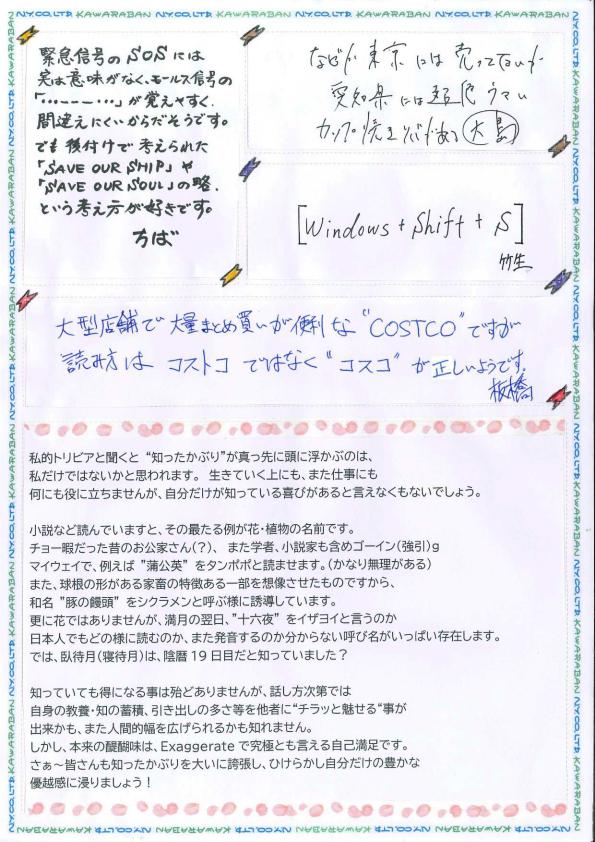 N.Y.CO.,LTD. KAWARABAN N.Y.CO.,LTD. KAWARABAN N.Y.CO.,LTD. KAWARABAN N.Y.CO.,LTD.
緊急信号のSOSには
実は意味がなく、モールス信号の
「・・・ーーー・・・」が覚えやすく、
間違えにくいからだそうです。
でも後付けで考えられた
「SAVE OUR SHIP」や
「SAVE OUR SOUL」の略、
という考え方が好きです。
ちば
なぜか東京には売ってないが
愛知県には超危うまい
カップ焼きそばがある 大島
[Windows + Shift + S]
竹生
大型店舗で大量まとめ買いが便利な“COSTCO”ですが
読み方は コストコ ではなく“コスコ”が正しいようです。
板橋
私的トリビアと聞くと “知ったかぶり”が真っ先に頭に浮かぶのは、
私だけではないかと思われます。 生きていく上にも、また仕事にも
何にも役に立ちませんが、自分だけが知っている喜びがあると言えなくもないでしょう。
小説など読んでいますと、その最たる例が花・植物の名前です。
チョー暇だった昔のお公家さん(?)、 また学者、小説家も含めゴーイン(強引)g
マイウェイで、例えば ”蒲公英” をタンポポと読ませます。(かなり無理がある)
また、球根の形がある家畜の特徴ある一部を想像させたものですから、
和名 ”豚の饅頭” をシクラメンと呼ぶ様に誘導しています。
更に花ではありませんが、満月の翌日、”十六夜” をイザヨイと言うのか
日本人でもどの様に読むのか、また発音するのか分からない呼び名がいっぱい存在します。
では、臥待月(寝待月)は、陰暦19日目だと知っていました?
知っていても得になる事は殆どありませんが、話し方次第では
自身の教養・知の蓄積、引き出しの多さ等を他者に“チラッと魅せる“事が
出来かも、また人間的幅を広げられるかも知れません。
しかし、本来の醍醐味は、Exaggerate で究極とも言える自己満足です。
さぁ~皆さんも知ったかぶりを大いに誇張し、ひけらかし自分だけの豊かな
優越感に浸りましょう!